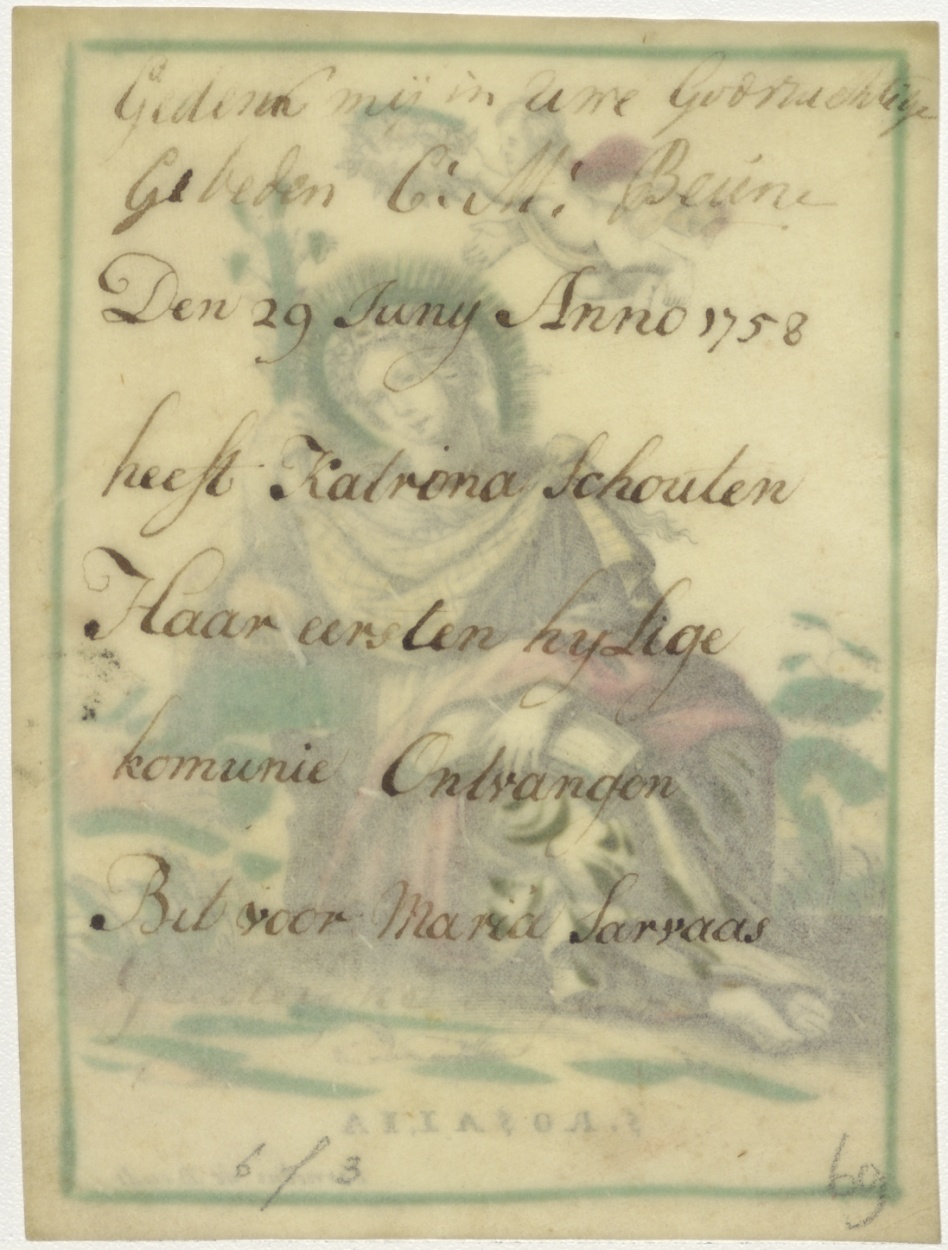 Gedenk mij in uwe Godvruchtige
Gebeden C: M: Beüne
Den 29 Juny Anno 1758
heeft Katrina Schouten
Haar eersten hylige
komunie Ontvangen
Bit voor Maria Sarvaas
S. ROSALIA
6 / 3
69